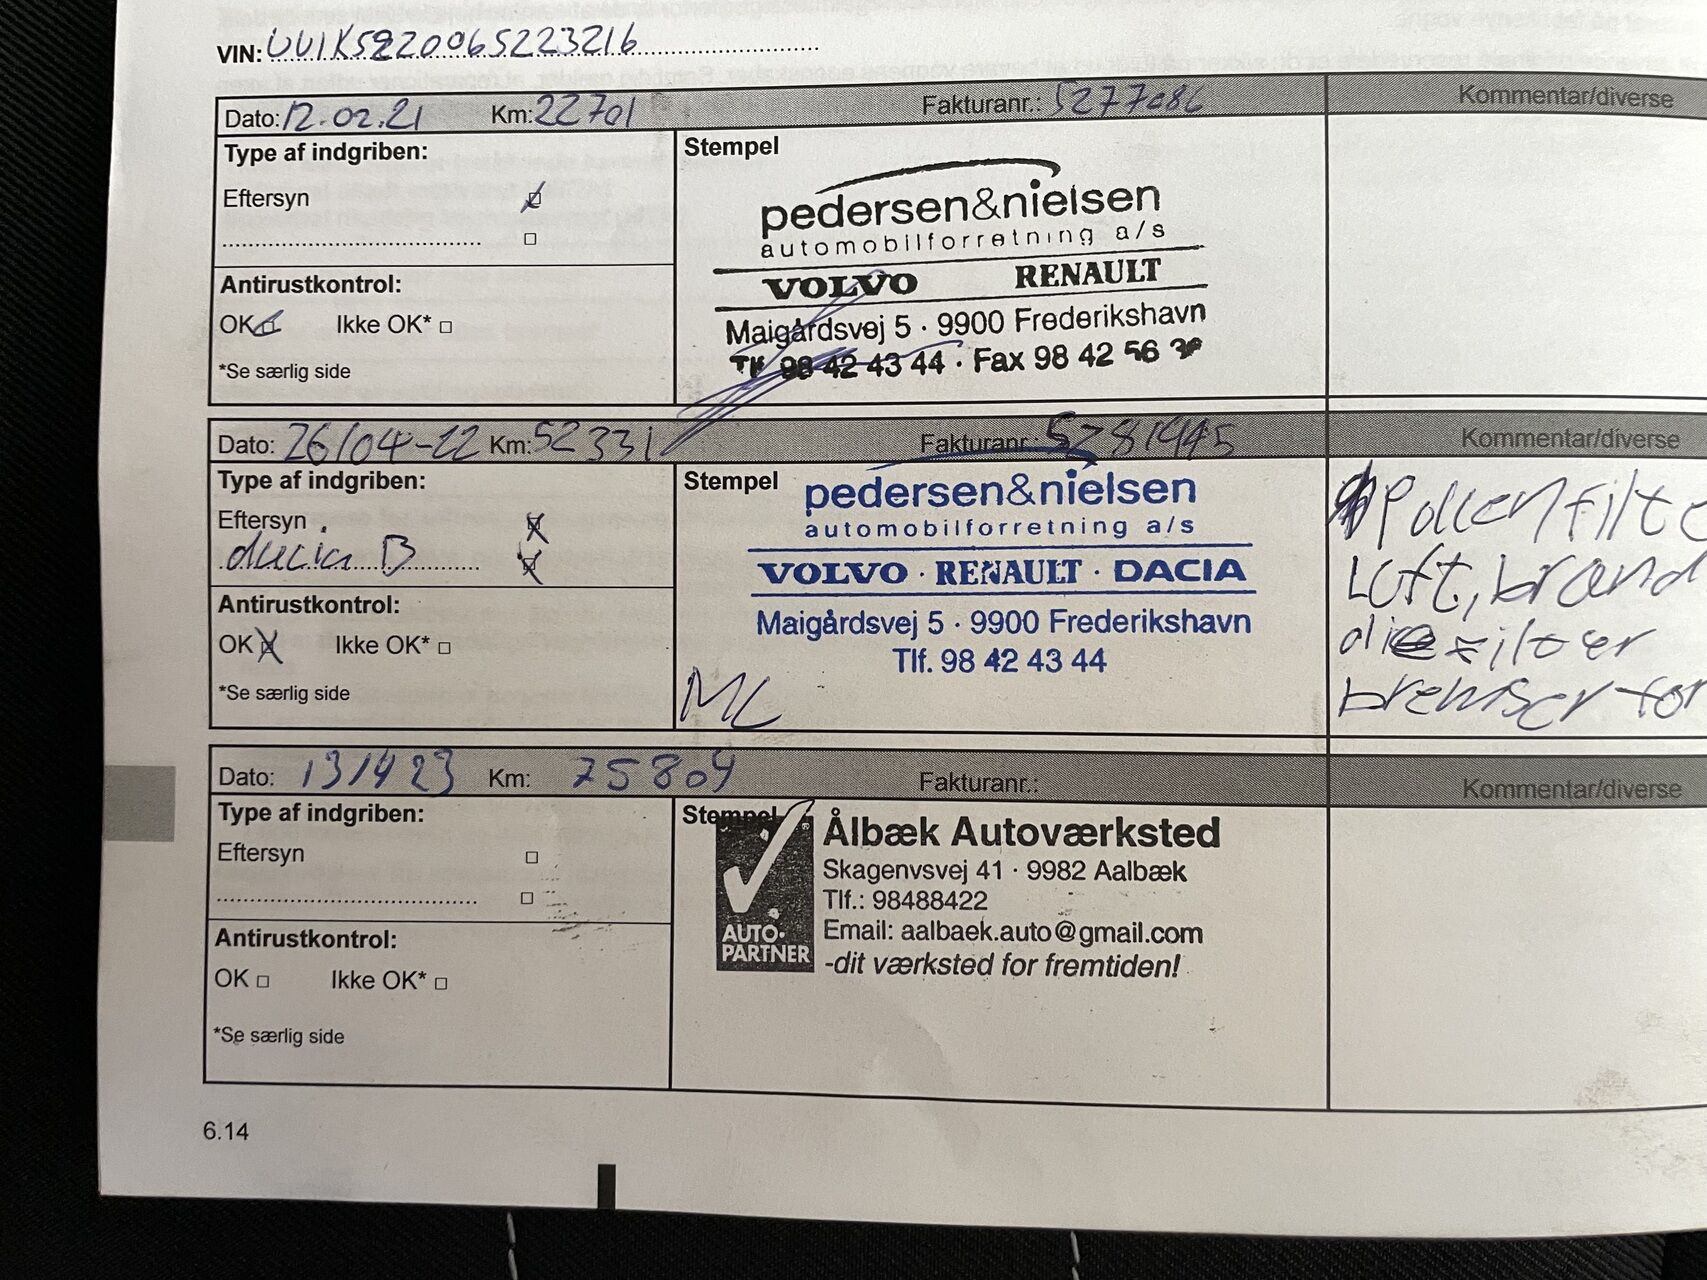 VIN: UU1K5220065223216
Dato: 12.02.21 Km: 22701 Fakturanr.: 5277086 Kommentar/diverse
Type af indgriben:
Eftersyn
Antirustkontrol:
OK Ikke OK*
*Se særlig side
Stempel
pedersen&nielsen
automobilforretning a/s
VOLVO RENAULT
Maigårdsvej 5 · 9900 Frederikshavn
Tlf 98 42 43 44 · Fax 98 42 56
Dato: 26/04-22 Km: 52331 Fakturanr.: 5281445 Kommentar/diverse
Type af indgriben:
Eftersyn
dacia B
Antirustkontrol:
OK Ikke OK*
*Se særlig side
Stempel
pedersen&nielsen
automobilforretning a/s
VOLVO · RENAULT · DACIA
Maigårdsvej 5 · 9900 Frederikshavn
Tlf. 98 42 43 44
ML
Pollenfilte
Luft, brænd
olie filter
bremser for
Dato: 13/4 23 Km: 75809 Fakturanr.: Kommentar/diverse
Type af indgriben:
Eftersyn
Antirustkontrol:
OK Ikke OK*
*Se særlig side
Stempel
AUTO-
PARTNER
Ålbæk Autoværksted
Skagenvsvej 41 · 9982 Aalbæk
Tlf.: 98488422
Email: aalbaek.auto@gmail.com
-dit værksted for fremtiden!
6.14